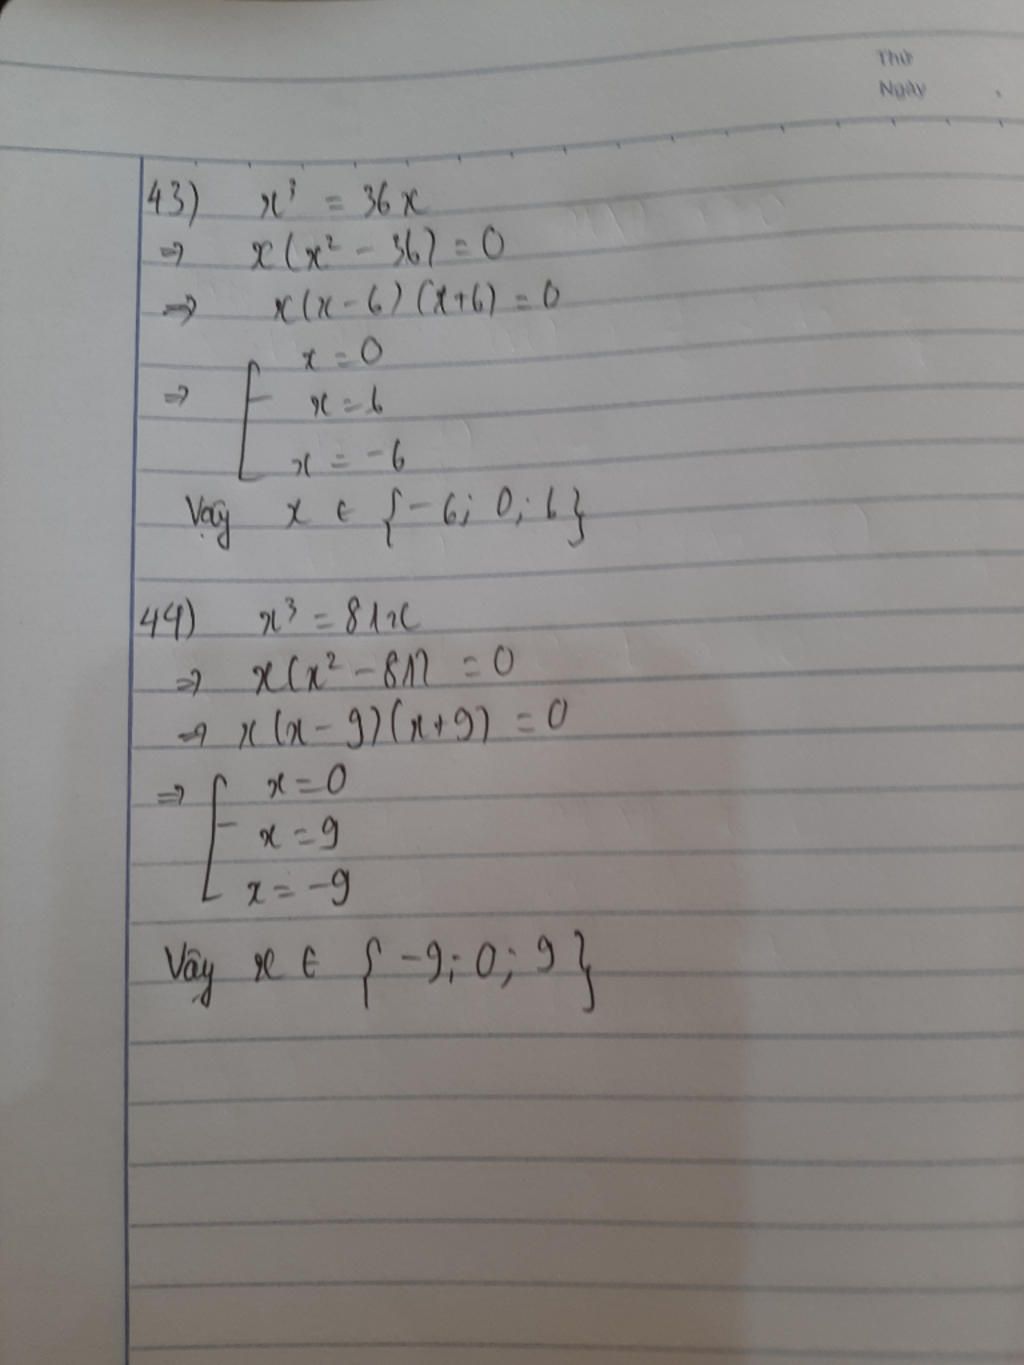 Thứ
Ngày
43) x³ = 36x
⇒ x(x² - 36) = 0
⇒ x(x - 6)(x+6) = 0
x = 0
⇒ [ x = 6
x = -6
Vậy x ∈ {-6; 0; 6}
44) x³ = 81x
⇒ x(x² - 81) = 0
⇒ x(x - 9)(x+9) = 0
⇒ [ x = 0
x = 9
x = -9
Vậy x ∈ {-9; 0; 9}